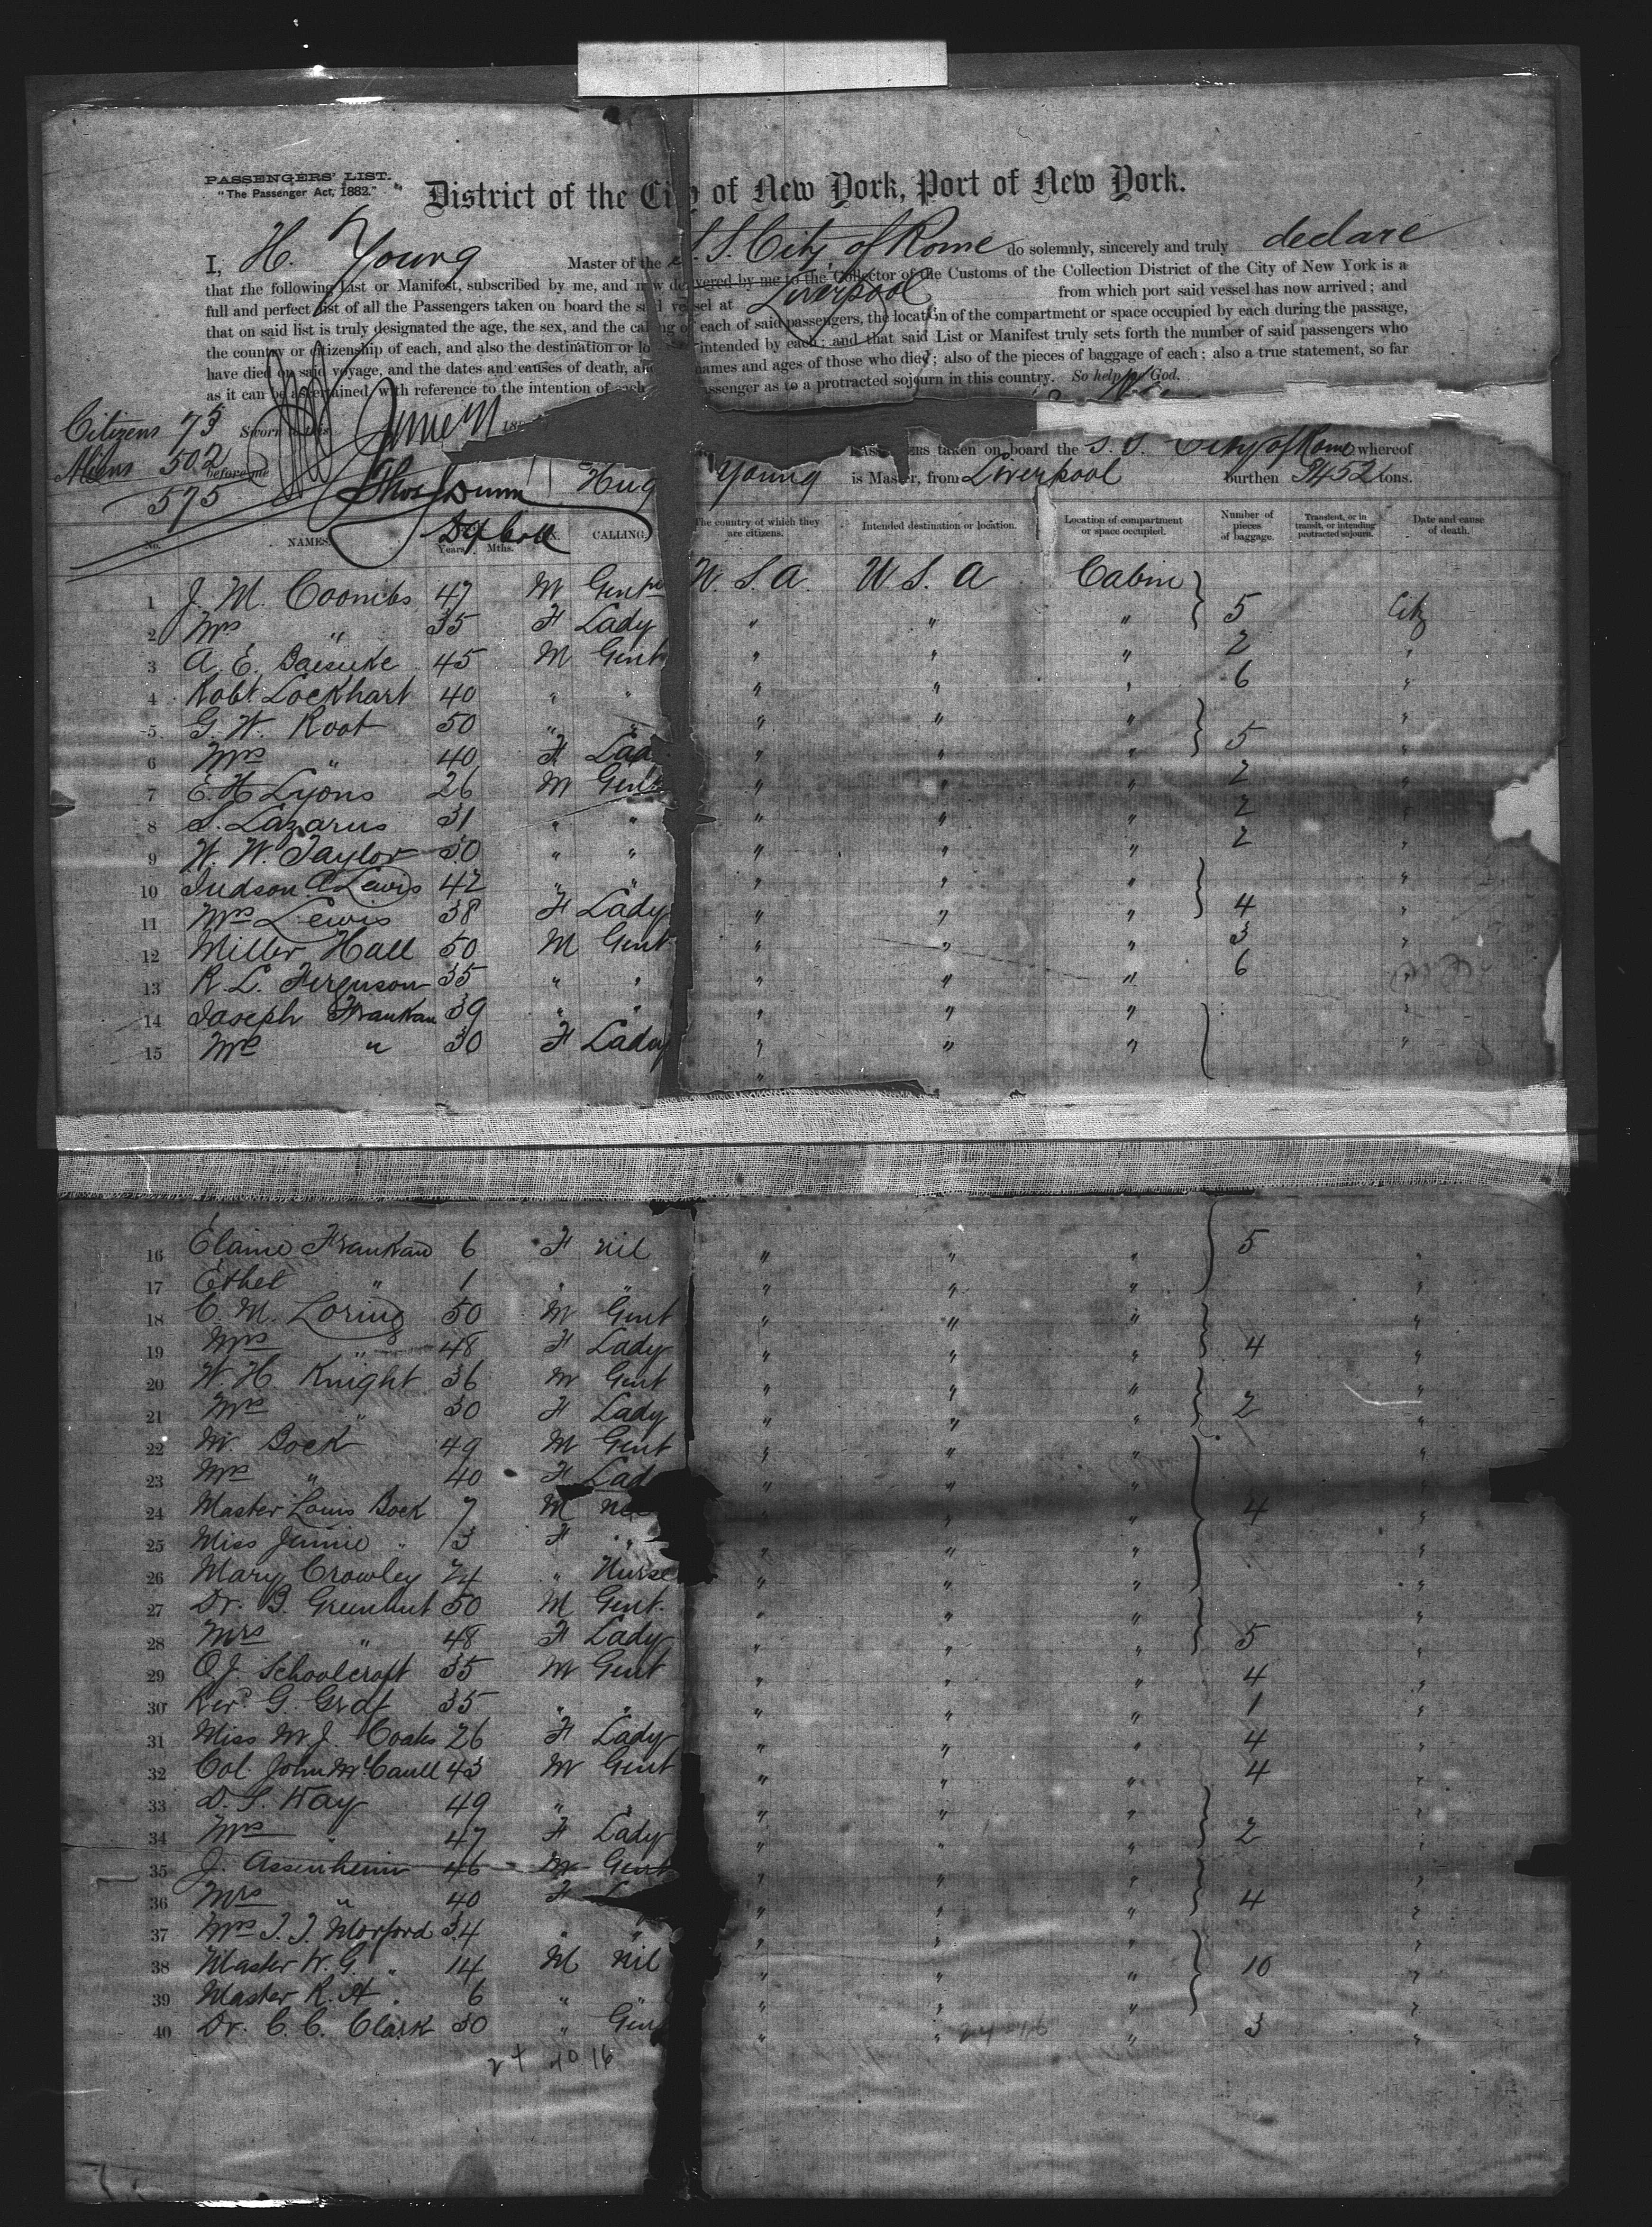 PASSENGERS' LIST.
"The Passenger Act, 1882."
District of the City of New York, Port of New York.
I, H. Young Master of the S. S. City of Rome do solemnly, sincerely and truly declare
that the following List or Manifest, subscribed by me, and now delivered by me to the Collector of the Customs of the Collection District of the City of New York is a
full and perfect list of all the Passengers taken on board the said vessel at Liverpool from which port said vessel has now arrived; and
that on said list is truly designated the age, the sex, and the calling of each of said passengers, the location of the compartment or space occupied by each during the passage,
the country or citizenship of each, and also the destination or lo intended by each; and that said List or Manifest truly sets forth the number of said passengers who
have died on said voyage, and the dates and causes of death, and names and ages of those who died; also of the pieces of baggage of each; also a true statement, so far
as it can be ascertained, with reference to the intention of each passenger as to a protracted sojourn in this country. So help me God.
Citizens 75 Sworn to this June 11 18
Aliens 502 before me
575
PASSENGERS taken on board the S. S. City of Rome whereof
Hug Young is Master, from Liverpool burthen 3452 tons.
No. NAMES. Years. Mths. SEX. CALLING. The country of which they are citizens. Intended destination or location. Location of compartment or space occupied. Number of pieces of baggage. Transient, or in transit, or intending protracted sojourn. Date and cause of death.
1 J. M. Coombs 47 M Gent U. S. A. U. S. A Cabin
2 Mrs " 35 F Lady " " " 5 City
3 A. E. 45 M Gent " " " 2 "
4 Robt. Lockhart 40 " " " " " 6 "
5 G. W. Root 50 " " " " " "
6 Mrs " 40 F Lad " " " 5 "
7 E. H. Lyons 26 M Gent " " " 2 "
8 S. Lazarus 31 " " " " " 2 "
9 W. W. Taylor 30 " " " " " 2 "
10 Judson C Lewis 42 " " " " " "
11 Mrs Lewis 38 F Lady " " " 4 "
12 Miller Hall 50 M Gent " " " 3 "
13 R. L. Ferguson 35 " " " " " 6 "
14 Joseph Frankau 39 " " " " " "
15 Mrs " 30 F Lady " " " "
16 Elaine Frankau 6 F nil " " " 5 "
17 Ethel " 1 " " " " " "
18 C. M. Loring 50 M Gent " " " "
19 Mrs " 48 F Lady " " " 4 "
20 W. H. Knight 36 M Gent " " " "
21 Mrs " 30 F Lady " " " 2 "
22 M. Bock 49 M Gent " " " "
23 Mrs " 40 F Lad " " " "
24 Master Louis Bock 7 M " " " 4 "
25 Miss Jennie " 3 F " " " " "
26 Mary Crowley 24 " Nurse " " " "
27 Dr. B. Greenhut 50 M Gent. " " " "
28 Mrs " 48 F Lady " " " 5 "
29 O. J. Schoolcroft 35 M Gent " " " 4 "
30 Revd. G. Graf 35 " " " " " 1 "
31 Miss M. J. Coates 26 F Lady " " " 4 "
32 Col. John McCaull 43 M Gent " " " 4 "
33 D. S. Way 49 " " " " " "
34 Mrs " 47 F Lady " " " 2 "
35 J. Assenheim 46 M Gent " " " "
36 Mrs " 40 F L " " " 4 "
37 Mrs T. J. Morford 34 " " " " " "
38 Master W. G. " 14 M nil " " " 10 "
39 Master R. H. " 6 " " " " " "
40 Dr. C. C. Clark 30 " Gen " " " 3 "
24 40 16
24-16